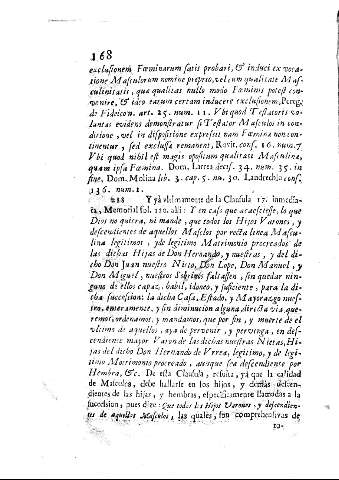 168
exclusionem Fœminarum satis probari, & induci ex voca-
tione Masculorum nomine proprio, vel cum qualitate Mas-
culinitatis, quæ qualitas nullo modo Fœminis potest con-
venire, & ideo earum certam inducere exclusionem, Pereg.
de Fideicom. art. 25. num. 11. Vbi quod Testatoris vo-
luntas evidens demonstratur si Testator Masculos in con-
ditione, vel in dispositione expressit nam Fœmina non con-
tinentur, sed exclusæ remanent, Rovit. cons. 16. num. 7
Vbi quod nihil est magis opositum qualitati Masculina,
quam ipsa Fœmina. Dom. Larrea decis. 34. num. 35. in
fine, Dom. Molina lib. 3. cap. 5. nu. 30. Landrechla cons.
136. num. 1.
218 Y yà vltimamente de la Clausula 17. inmedia-
ta, Memorial fol. 120. alli: Y en caso que acaesciesse, lo que
Dios no quiera, ni mande, que todos los Hijos Varones, y
descendientes de aquellos Maslos por recta linea Mascu-
lina legitimos, y de legitimo Matrimonio procreados de
las dichas Hijas de Don Hernando, y nuestras, y del di-
cho Don Juan nuestro Nieto, Don Lope, Don Manuel, y
Don Miguel, nuestros Sobrinos faltassen, sin quedar nin-
guno de ellos capaz, habil, idoneo, y suficiente, para la di-
cha succession: la dicha Casa, Estado, y Mayorazgo nues-
tro, enteramente, y sin diminucion alguna, directa via, que-
remos, ordenamos, y mandamos, que por fin, y muerte de el
vltimo de aquellos, aya de pervenir, y pervenga, en des-
cendiente mayor Varon de las dichas nuestras Nietas, Hi-
jas del dicho Don Hernando de Vrrea, legitimo, y de legi-
timo Matrimonio procreado, aunque sea descendiente por
Hembra, &c. De esta Clausula, resulta, yà que la calidad
de Masculos, debe hallarse en los hijos, y demàs descen-
dientes de las hijas, y hembras, especificamente llamados a la
succession, pues dize: Que todos los Hijos Varones, y descendien-
tes de aquellos Masculos, las quales, son comprehensivas de
to-